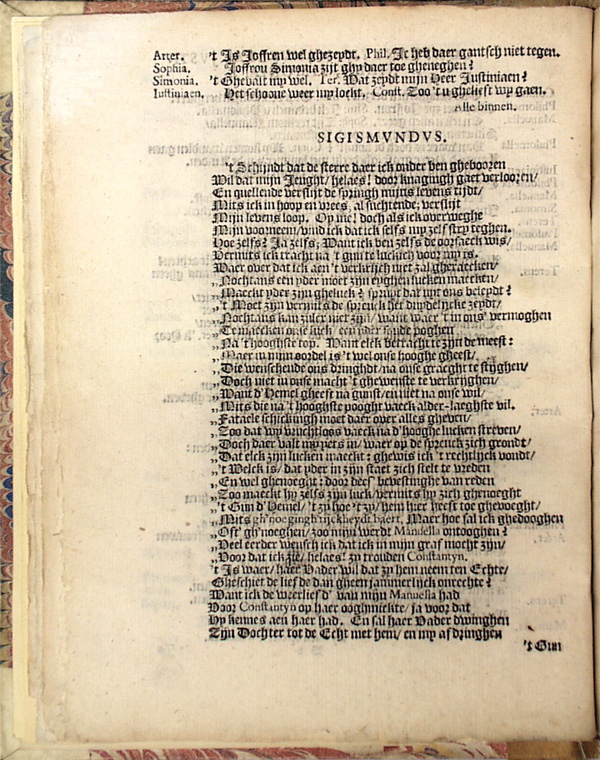 Arter. 't Is Joffren wel ghezeydt. Phil. Ic heb daer gantsch niet tegen.
Sophia. Joffrou Simonia zijt ghy daer toe gheneghen?
Simonia. 't Ghevalt my wel. Ter. Wat zeydt mijn Heer Justiniaen?
Iustiniaen. Het schoone weer my lockt. Const. Zoo 't u ghelieft wy gaen.
Alle binnen.
SIGISMVNDVS.
't Schijndt dat de sterre daer ick onder ben ghebooren
Wil dat mijn Jeught/ helaes! door knagingh gaet verlooren/
En quellende verslijt de springh mijns levens tijdt/
Mits ick in hoop en vrees, al suchtende; verslijt
Mijn levens loop. Op nie! doch als ick overweghe
Mijn voorneem/ vind ick dat ick selfs my zelf stry teghen.
Hoe zelfs? Ja zelfs; Want ick ben zelfs de oorsaeck wis/
Vermits ick tracht na 't gun te luckich voor my is.
Waer over dat ick aen 't verkrijch niet zal gheraecken/
„Nochtans een yder moet zijn eyghen lucken maecken/
„Maeckt yder zijn gheluck? spruyt dat uyt ons beleydt?
„'t Moet zijn vermits de spreuck het duydelijcke zeydt/
„Nochtans kan zulcx niet zijn/ want waer 't in ons' vermoghen
„Te maecken onse luck een yder sandt poghen
„Na 't hooghste top. Want elck betracht te zijn de meest:
„Maer in mijn oordel is 't wel onse hooghe gheest/
„Die wenschende ons dringhdt/ na onse graeght te stijghen/
„Doch niet in onse macht 't ghewenste te verkrijghen/
„Want d'Hemel gheeft na gunst/ en niet na onse wil/
„Mits die na 't hooghste pooght vaeck alder-laeghste vil.
„Fataele schickingh moet daer over alles gheven/
„Zoo dat wy vruchtloss vaeck na d'hooghe lucken streeven/
„Doch daer valt my yets in/ waer op de spreuck zich grondt/
„Dat elck zijn lucken maeckt: ghewis ick 't rechtlijck vondt/
„'t Welck is/ dat yder in zijn staet zich stelt te vreden
„En wel ghenoeght: door dees' bevestinghe van reden
„Zoo maeckt hy zelfs zijn luck/ vermits hy zich ghenoeght
„'t Gun d'Hemel/ 't zy hoe 't zy/ hem hier heeft toe ghevoeght/
„Mits gh'noegingh rijckheydt baert, Maer hoe sal ick ghedooghen
„Oft' gh'noeghen/ zoo mijn werdt Mandella ontooghen?
„Veel eerder wensch ick dat ick in mijn graf mocht zijn/
„Voor dat ick zie/ helaes! zy trouden Constantyn,
't Is waer/ haer Vader wil dat zy hem neem ten Echte/
Gheschiet de lief de dan gheen jammerlijck onrechte?
Want ick de weerlief d' van mijn Manuella had
Voor Constantyn op haer ooghmickte/ ja voor dat
Hy kennes aen haer had. En sal haer Vader dwinghen
Zijn Dochter tot de Echt met hem/ en my af dringhen
't Gun